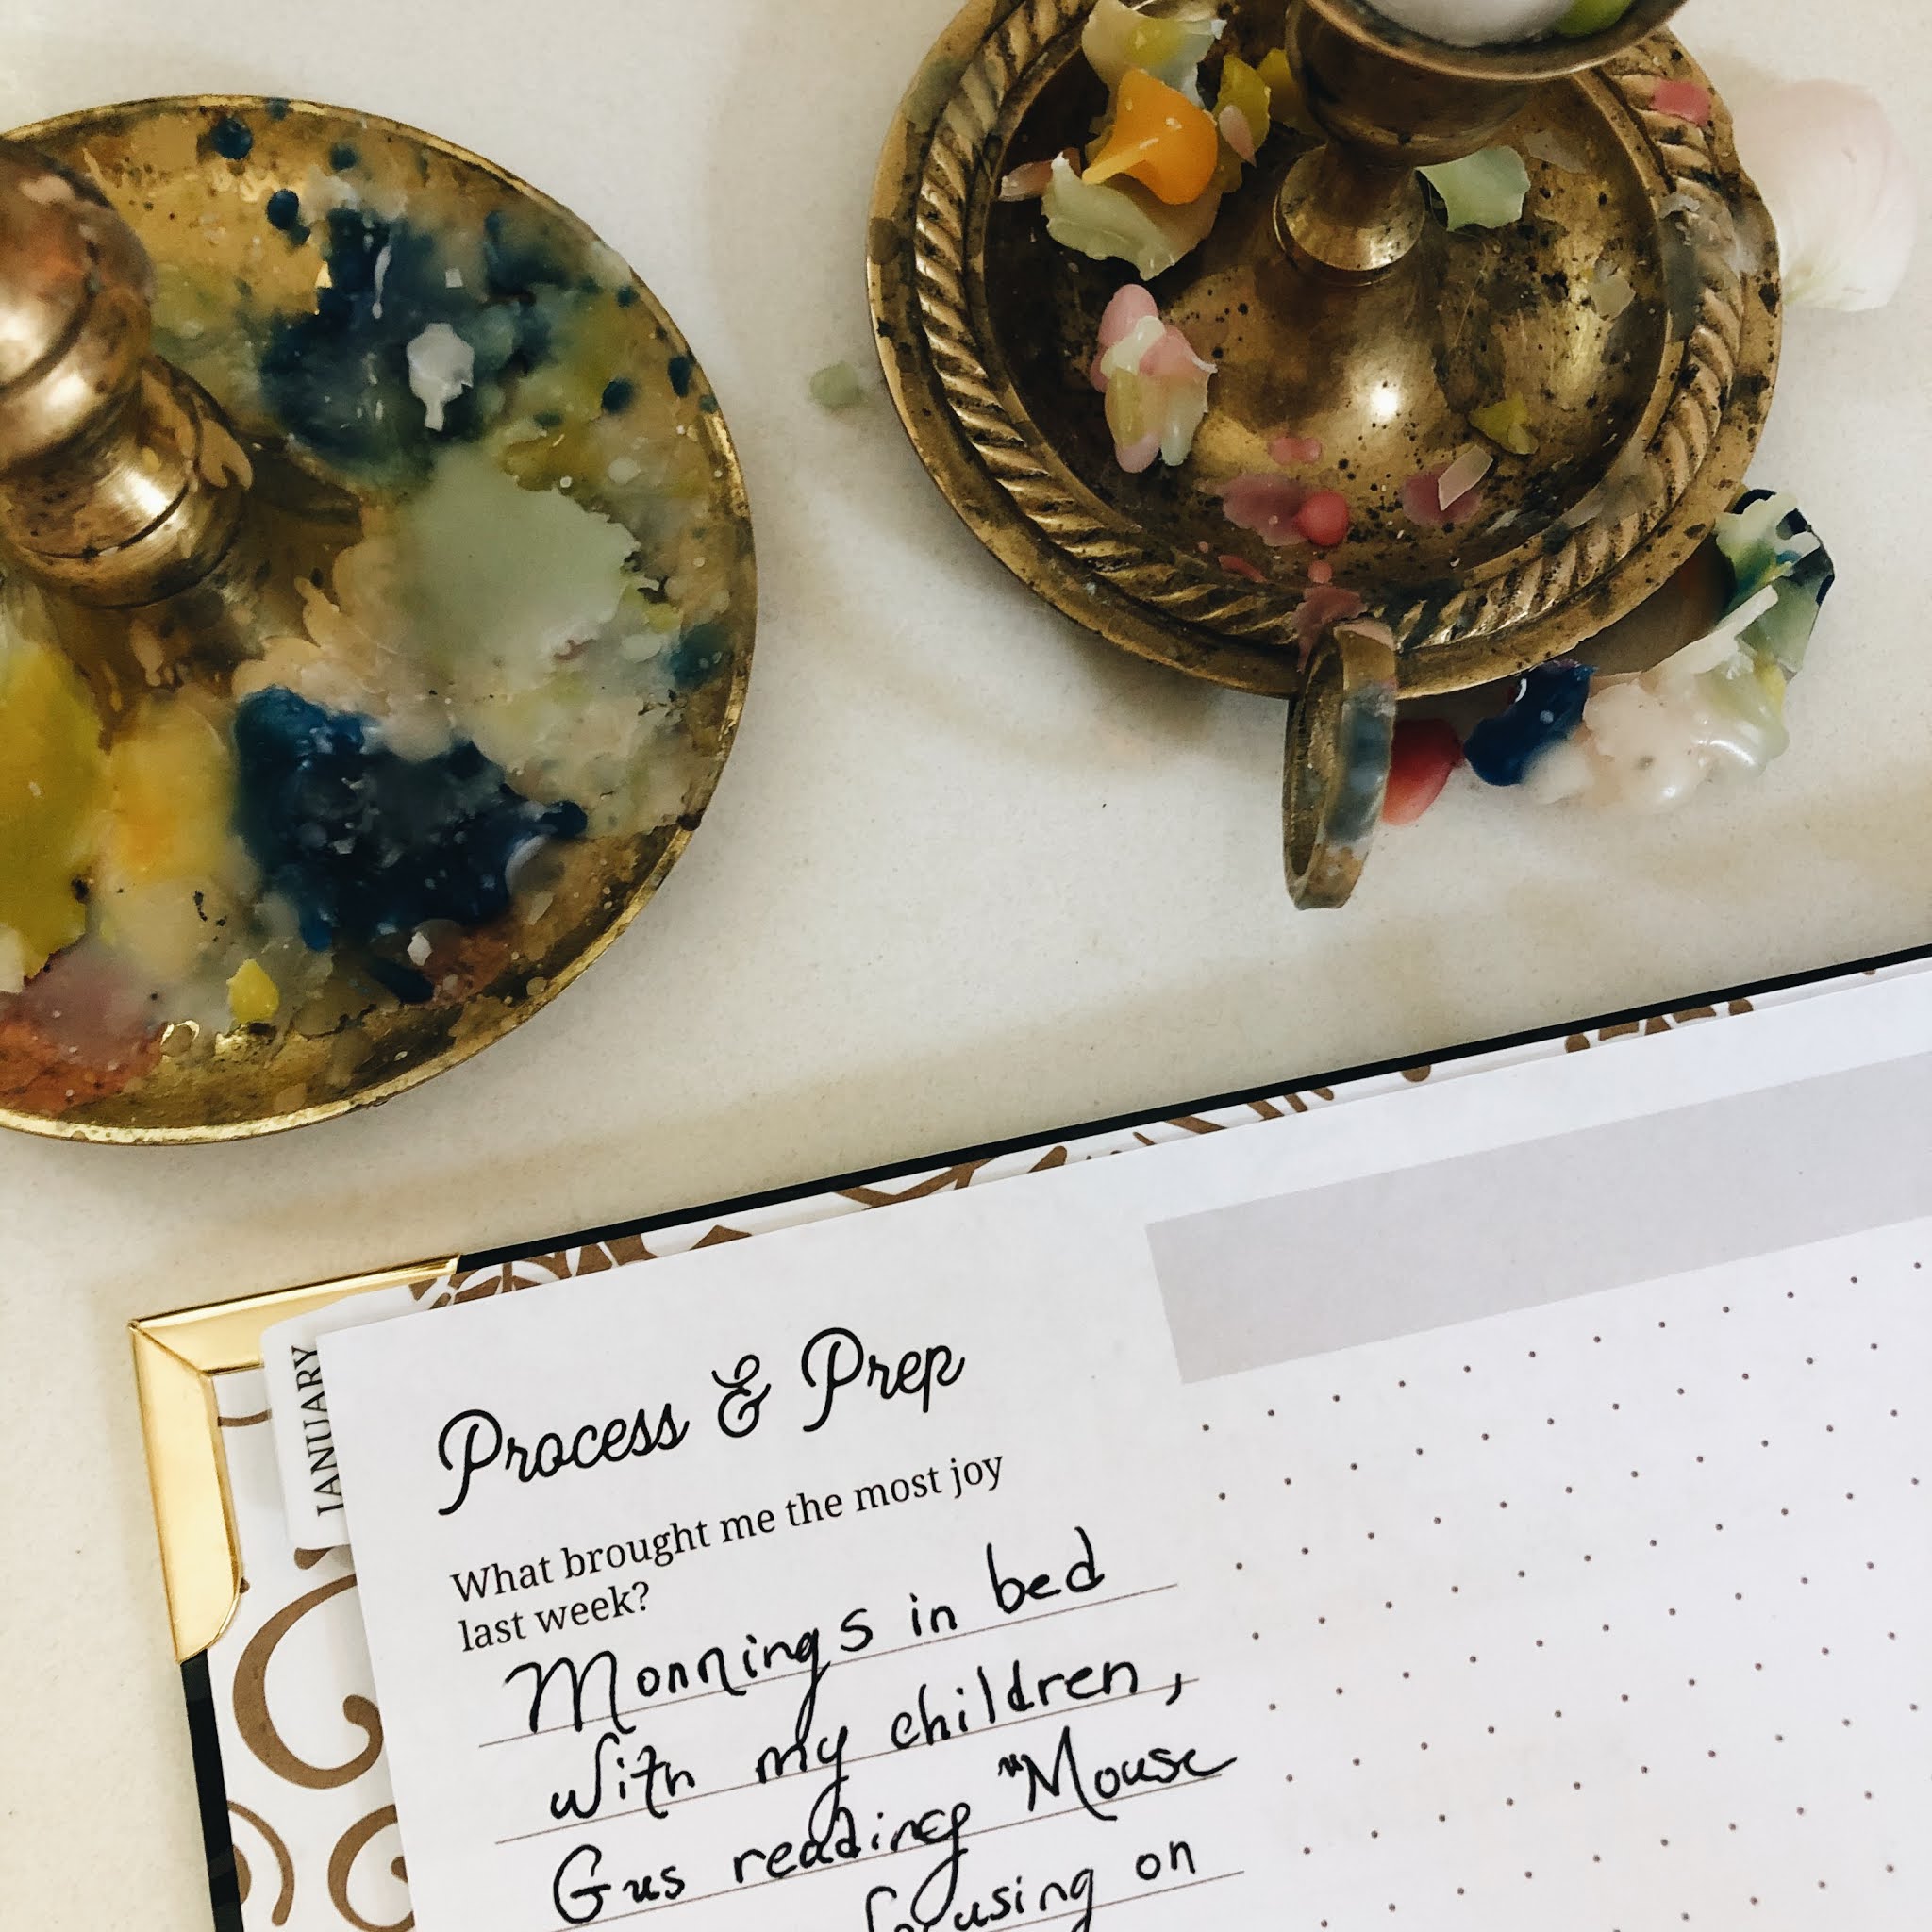 JANUARY
Process & Prep
What brought me the most joy
last week?
Mornings in bed
with my children,
Gus reading "Mouse
focusing on